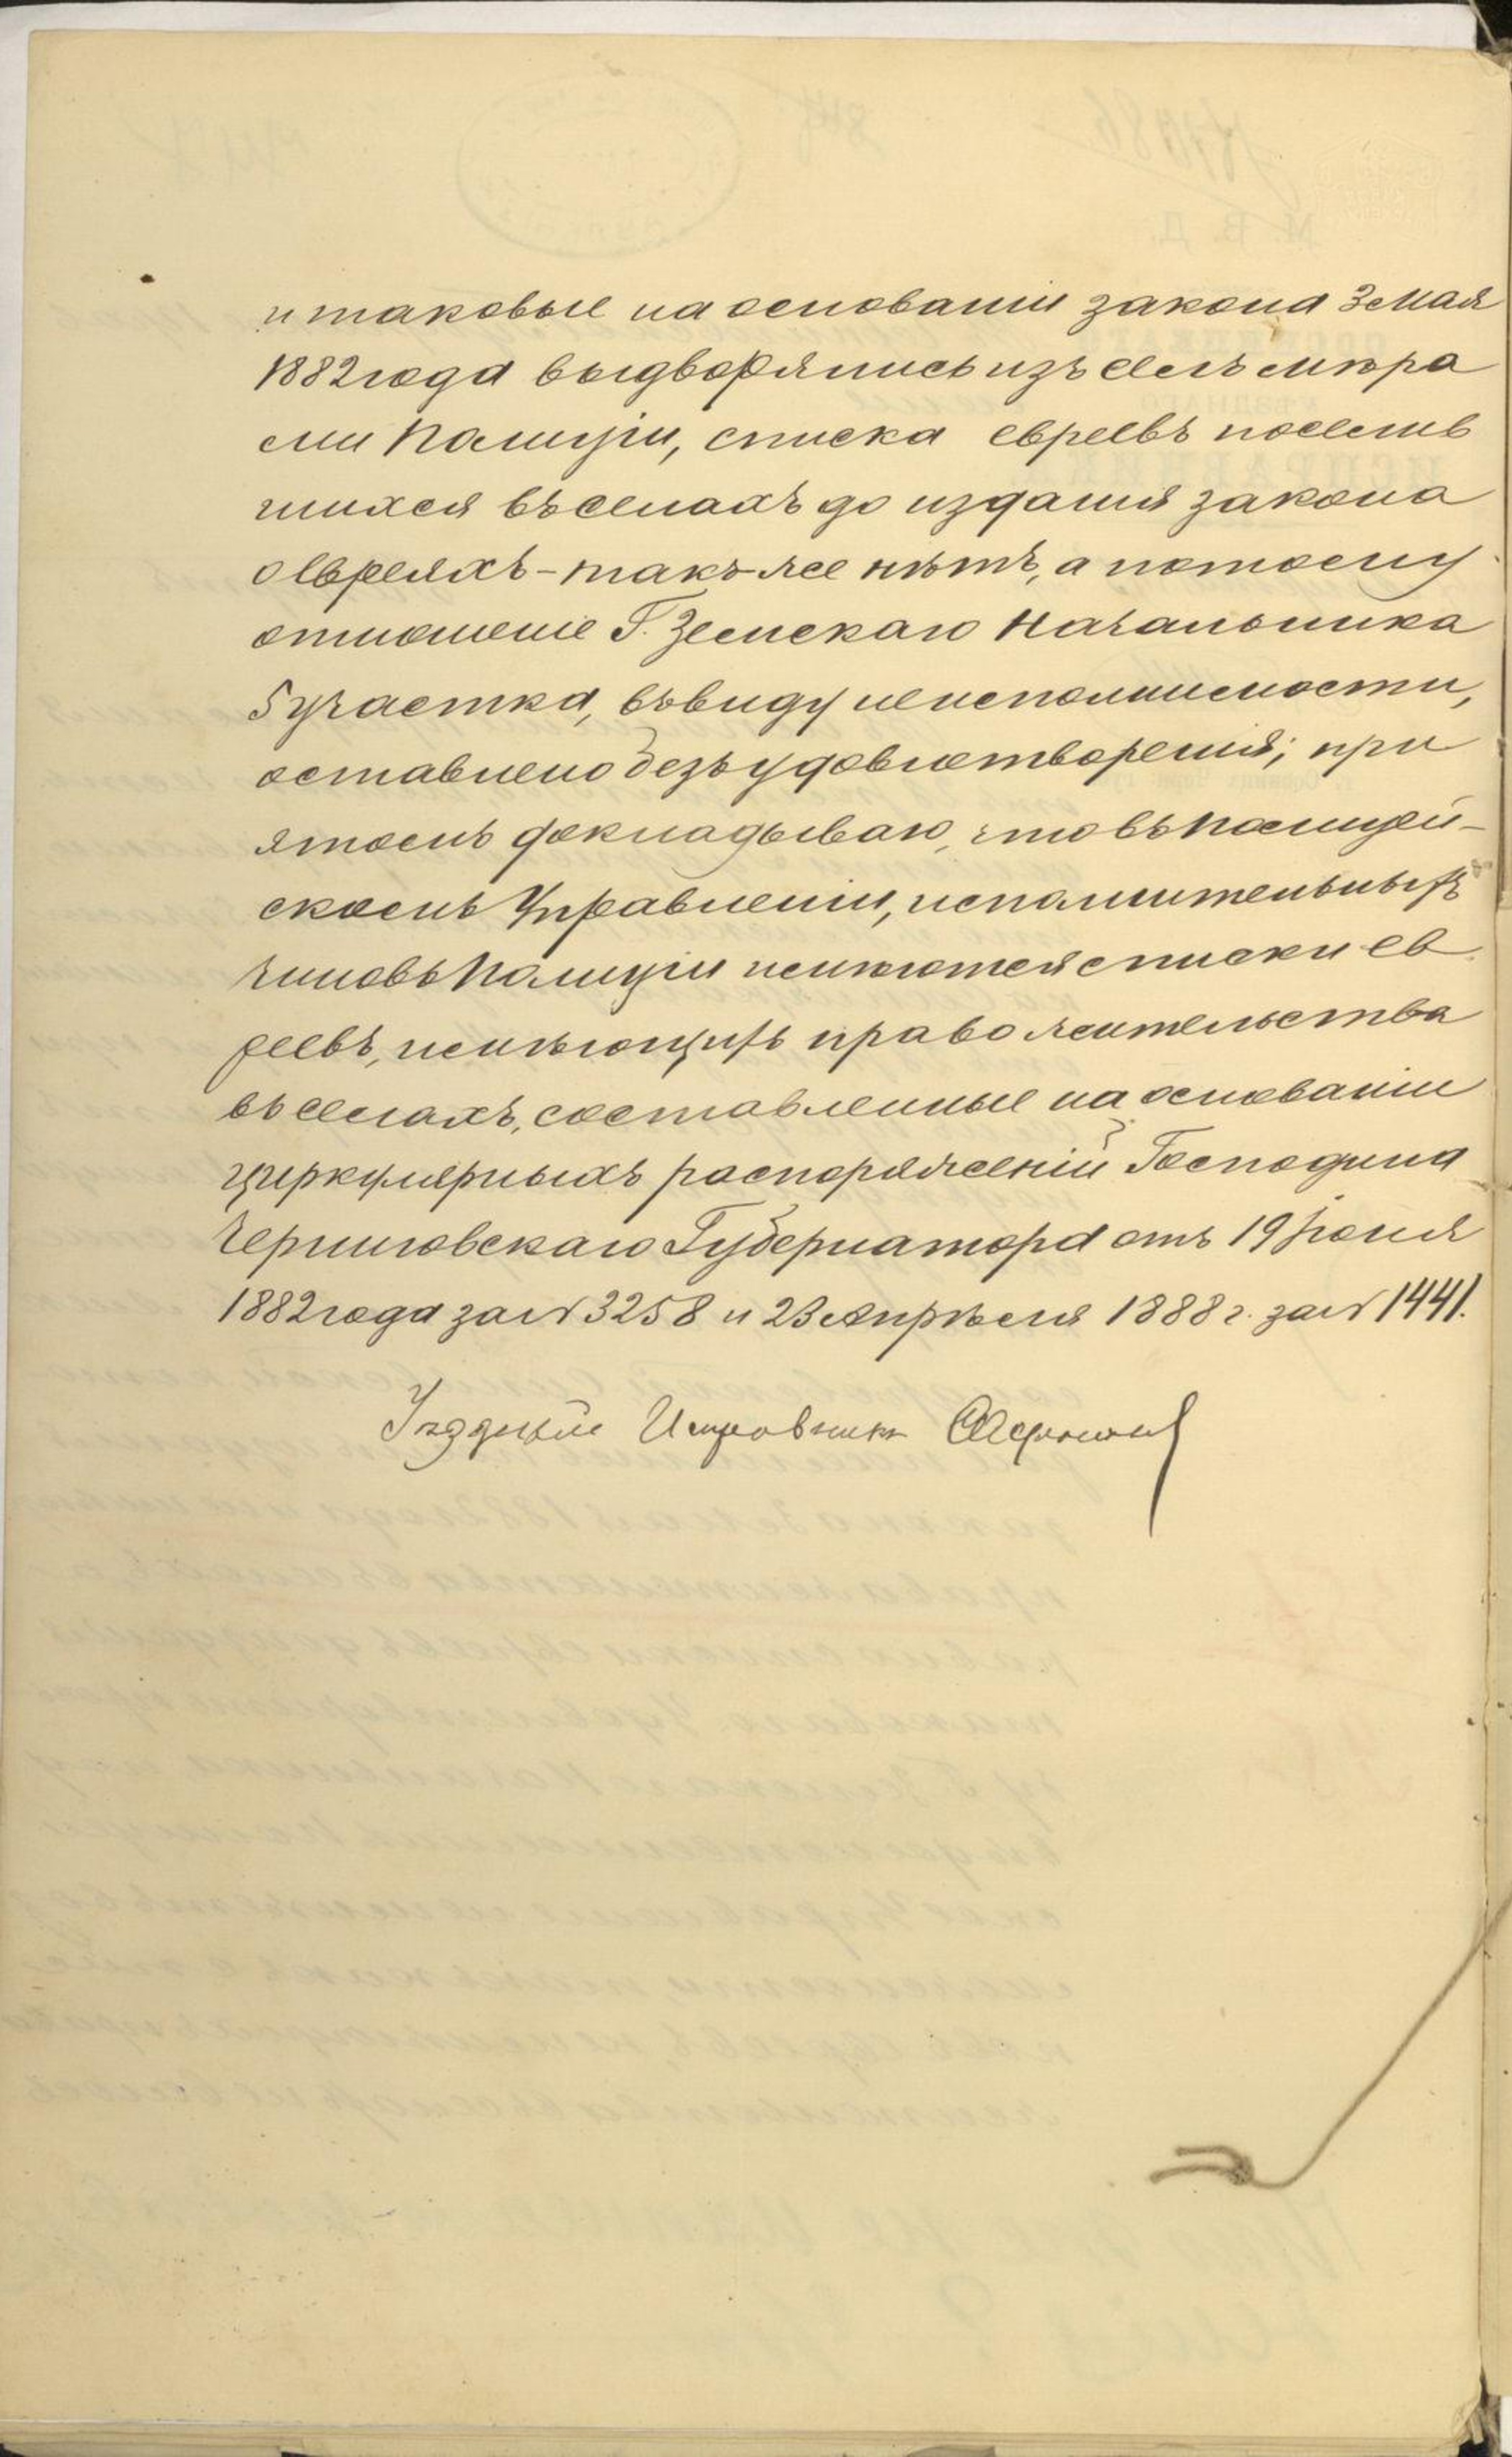 и таковые на основаніи закона 3 Мая
1882 года выдворялись изъ селъ мѣра
ми Полиціи, списка евреевъ поселив
шихся въ селахъ до изданія закона
о Евреяхъ - такъ-же нѣтъ, а потому
отношеніе Г. Земскаго Начальника
5 участка, въ виду неисполнимости,
оставлено безъ удовлетворенія; при
этомъ докладываю, что въ Полицей-
скомъ Управленіи, исполнительныхъ
чиновъ Полиціи имѣются списки ев
реевъ, имѣющихъ право жительства
въ селахъ, составленные на основаніи
циркулярныхъ распоряженій Господина
Черниговскаго Губернатора отъ 19 Іюня
1882 года за № 3258 и 23 Апрѣля 1888 г. за № 1441.
Уѣздный Исправникъ